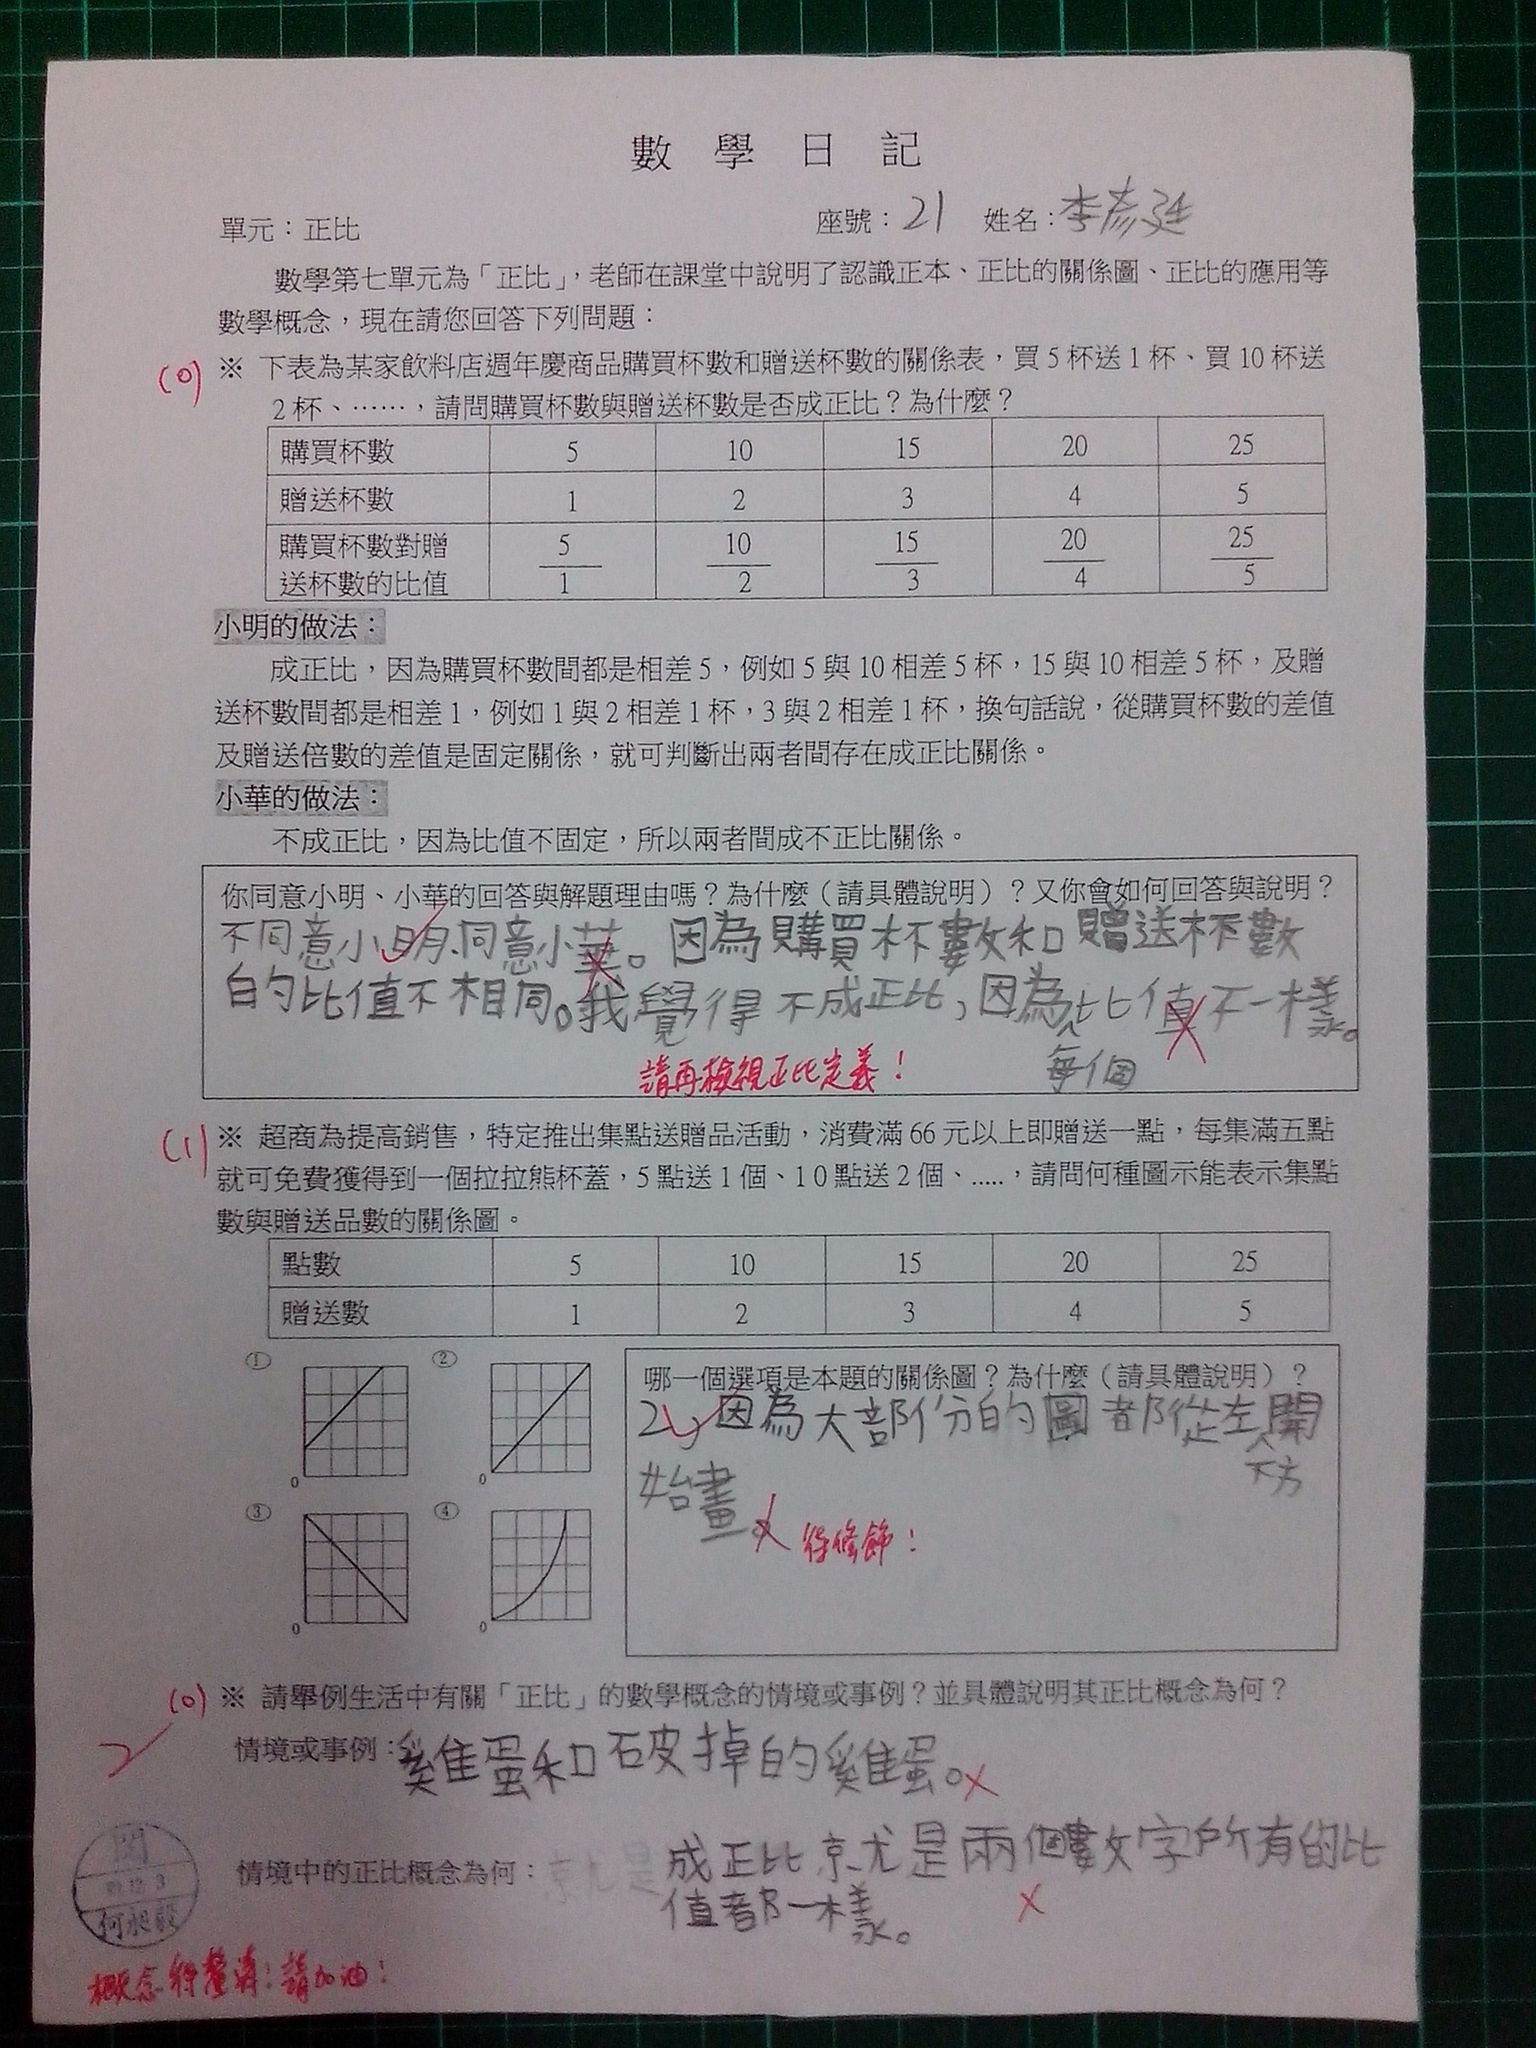 數學日記
單元：正比 座號：21 姓名：李彥廷
數學第七單元為「正比」，老師在課堂中說明了認識正本、正比的關係圖、正比的應用等
數學概念，現在請您回答下列問題：
(0) ※ 下表為某家飲料店週年慶商品購買杯數和贈送杯數的關係表，買 5 杯送 1 杯、買 10 杯送
2 杯、……，請問購買杯數與贈送杯數是否成正比？為什麼？
購買杯數 5 10 15 20 25
贈送杯數 1 2 3 4 5
購買杯數對贈 5 10 15 20 25
送杯數的比值 1 2 3 4 5
小明的做法：
成正比，因為購買杯數間都是相差 5，例如 5 與 10 相差 5 杯，15 與 10 相差 5 杯，及贈
送杯數間都是相差 1，例如 1 與 2 相差 1 杯，3 與 2 相差 1 杯，換句話說，從購買杯數的差值
及贈送倍數的差值是固定關係，就可判斷出兩者間存在成正比關係。
小華的做法：
不成正比，因為比值不固定，所以兩者間成不正比關係。
你同意小明、小華的回答與解題理由嗎？為什麼（請具體說明）？又你會如何回答與說明？
不同意小明、同意小華。因為購買杯數和贈送杯數
的比值不相同。我覺得不成正比，因為比值不一樣。
每個
請再檢視正比定義！
(1) ※ 超商為提高銷售，特定推出集點送贈品活動，消費滿 66 元以上即贈送一點，每集滿五點
就可免費獲得到一個拉拉熊杯蓋，5 點送 1 個、10 點送 2 個、.....，請問何種圖示能表示集點
數與贈送品數的關係圖。
點數 5 10 15 20 25
贈送數 1 2 3 4 5
① ②
0 0
③ ④
0 0
哪一個選項是本題的關係圖？為什麼（請具體說明）？
2，因為大部份的圖都從左開
下方
始畫。
待修飾！
(0) ※ 請舉例生活中有關「正比」的數學概念的情境或事例？並具體說明其正比概念為何？
情境或事例：雞蛋和破掉的雞蛋。
情境中的正比概念為何：成正比就是兩個數字所有的比
值都一樣。
閱
何昶毅
概念待釐清！請加油！